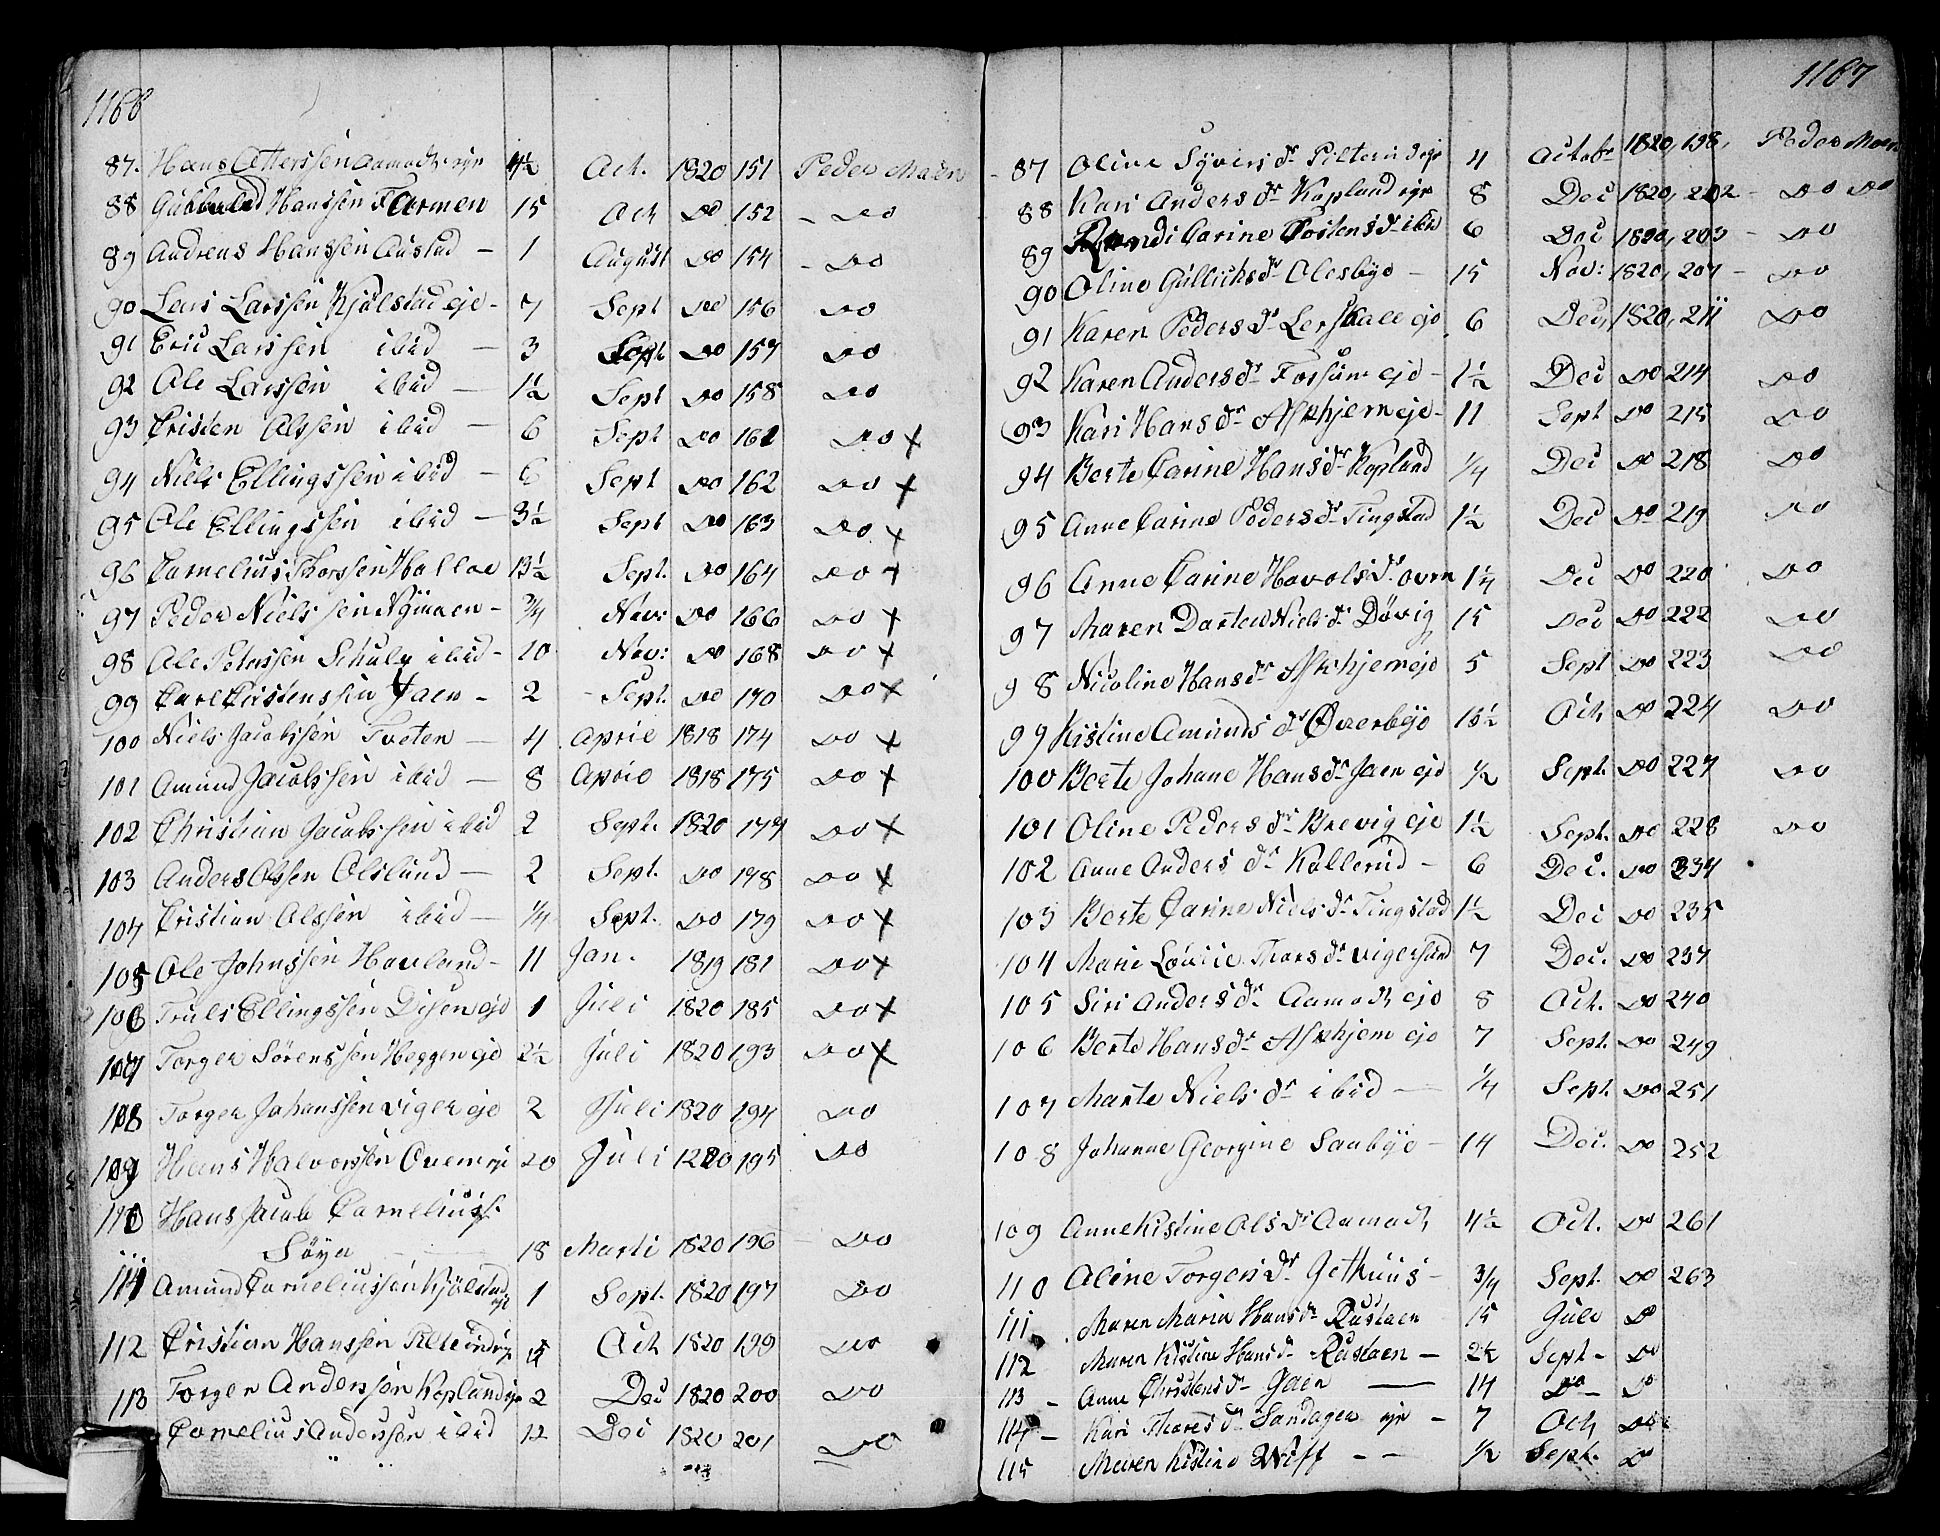 1166
87. Hans Otterssen Aamodt eje 4½ Oct. 1820 151 Peder Moen
88 Gulbrand Hanssen Formen 15 Oct Do 152 - Do
89 Andreas Hanssen Austad - 1 August Do 154 - Do
90 Lars Larssen Kjölstad eje - 7 Sept Do 156 Do
91 Eric Larssen ibid - 3 Sept Do 157 Do
92 Ole Larssen ibid - 1½ Sept Do 158 Do
93 Cristen Olssen ibid - 6 Sept Do 161 Do x
94 Niels Ellingssen ibid - 6 Sept Do 162 Do x
95 Ole Ellingssen ibid - 3½ Sept Do 163 Do x
96 Cornelius Thorssen 13½ Sept. Do 164 Do x
97 Peder Nielssen Nÿmoen - ¾ Nov: Do 166 Do x
98 Ole Peterssen Schulz ibid - 10 Nov: Do 168 Do x
99 Carl Cristenssen Jaen - 2 - Sept. Do 170 Do x
100 Niels Jacobssen Tveten - 4 April 1818 174 Do x
101 Amund Jacobssen ibid - 8 April 1818 175 Do x
102 Christian Jacobssen ibid 2 Sept. 1820 177 Do x
103 Anders Olssen Olslund - 2 Sept. Do 178 Do x
104 Cristian Olssen ibid - ¼ Sept. Do 179 Do x
105 Ole Johnssen Hovland - 11 Jan. 1819 181 Do x
106 Truls Ellingssen Disen eje 1 Juli 1820 185 Do x
107 Torger Sörenssen Heggen eje 2½ Juli 1820 193 Do x
108 Torger Johanssen Viger eje 2 Juli 1820 194 Do
109 Hans Halvorssen Overn eje 20 Juli 1820 195 Do
110 Hans Jacob Corneliuss.
Söya 18 Marti 1820 196 - Do
111 Amund Corneliussen Kjölstad eje 1 Sept. 1820 197 Do
112 Cristian Hanssen eje Oct 1820 199 Do
113 Torger Anderssen Kopland eje 2 Dec 1820 200 Do
Cornelius Anderssen ibid 12 Dec 1820 201 Do
1167
87 Oline Syvers dr Pilterud eje 4 Octobr 1820, 198, Peder Moen
88 Kari Anders dr Kopland eje 8 Dec 1820, 202 - Do Do
89 Randi Carine Tostens dr ibid 6 Dec 1820, 203 - Do
90 Oline Gullichs dr Olesbye - 15 Nov: 1820, 207 - Do
91 Karen Peders dr Lerskall eje 6 Dec, 1820, 211 Do
92 Karen Anders dr Forsum eje - 1½ Dec Do 214 Do
93 Kari Hans dr Askhjem eje - 11 Sept Do 215 Do
94 Berte Carine Hans dr Kopland ¼ Dec Do 218 Do
95 Anne Carine Peders dr Tingstad 1½ Dec Do 219 Do
96 Anne Carine Hovols dr overn 1¼ Dec Do 220 Do
97 Maren Dorthea Niels dr Dövig 15 Dec Do 222 Do
98 Nicoline Hans dr Askhjem eje 5 Sept Do 223 Do
99 Kistine Amunds dr Överbye 15½ Oct, Do 224 Do
100 Berte Johane Hans dr Jaen eje ½ Sept. Do 227 Do
101 Oline Peders dr Brevig eje 1½ Sept. Do 228 Do
102 Anne Anders dr Kollerud - 6 Dec. Do 234
103 Berte Carine Niels dr Tingstad 1½ Dec Do 235
104 Marie Lovise Thors dr Vigersund 7 Dec. Do 237
105 Siri Anders dr Aamodt eje 8 Oct. Do 240
106 Berte Hans dr Askhjem eje 7 Sept. Do 249
107 Marte Niels dr ibid - ¼ Sept. Do 251
108 Johanne Georgine Saubye - 14 Dec. Do 252
109 Anne Kistine Ols dr Aamodt 4½ Oct. Do 261
110 Oline Torgers dr Gethuus - ¾ Sept. Do 263
111 Maren Maria Hans dr Rustaen 15 Jule Do
112 Maren Kistine Hans dr Rustaen - 2½ Sept - Do
113 - Anne Christens dr Jaen - 14 Do - Do
114 - Kari Thores dr Sandager eje - 7 Oct, Do
115 Maren Kistine Wiff - - ½ Sept. Do